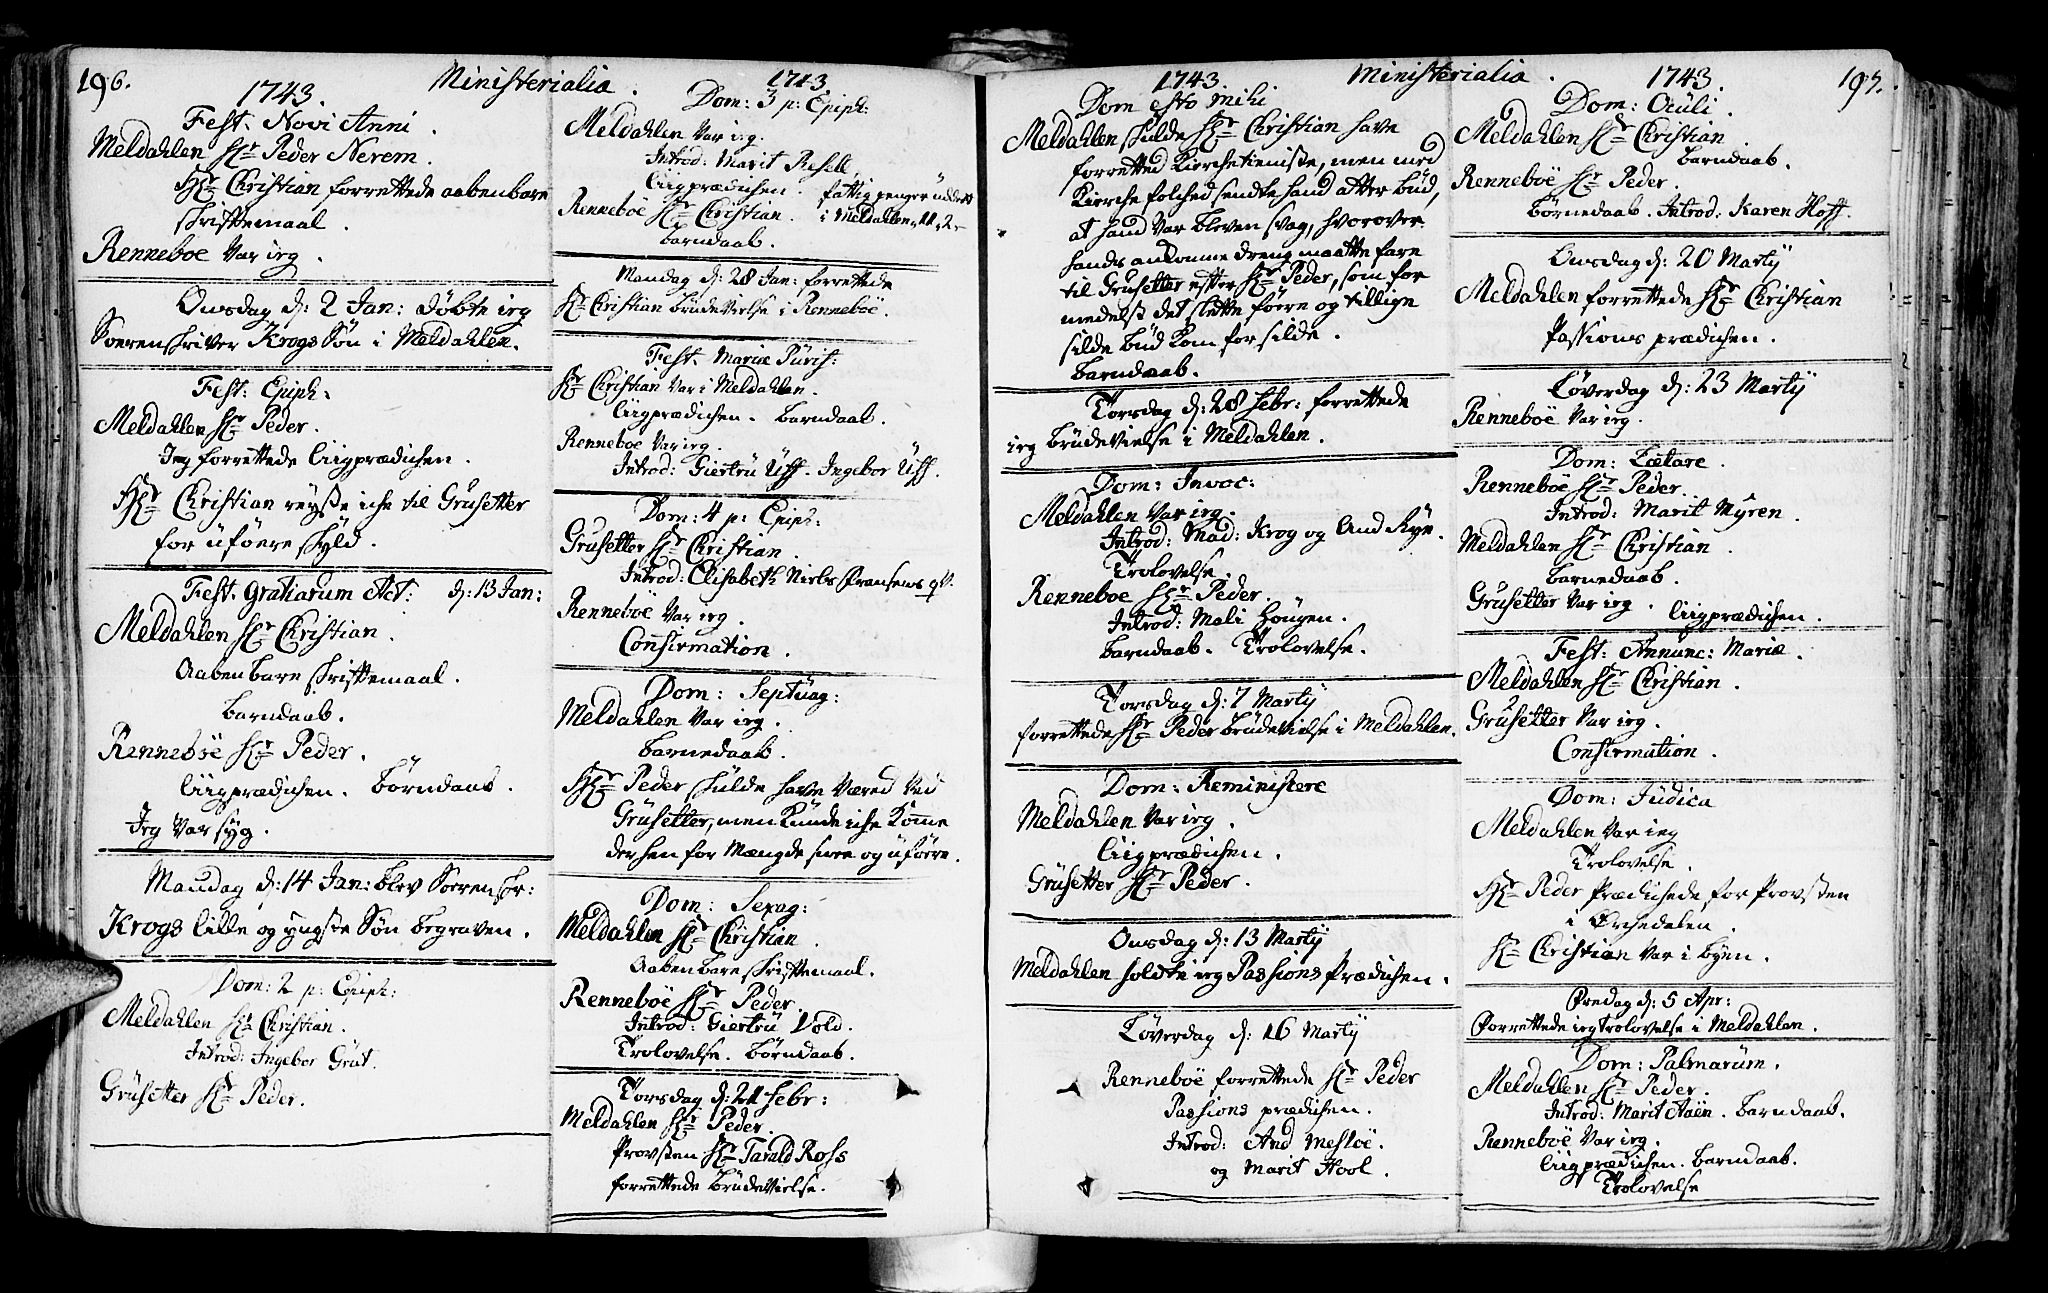 196.
Ministerialia.
1743.
Fest. Novi Anni.
Meldahlen Hr Peder Nerem.
Hr Christian forrettede aabenbare
skriftemaal.
Renneboe var ieg.
Onsdag d: 2 Jan: døbte ieg
Soerenskriver Krogs Søn i Meldahlen.
Fest: Epiph:
Meldahlen Hr Peder.
Jeg forrettede Liigprædichen.
Hr Christian reyste iche til Grüsetter
for üføere skyld.
Fest. Gratiarum Act: d: 13 Jan:
Meldahlen Hr Christian.
Aabenbare skriftemaal.
barndaab.
Renneböe Hr Peder.
Liigprædichen. Börndaab.
Jeg var syg.
Mandag d: 14 Jan: blev Sorenskr:
Krogs lille og yngste Søn begraven.
Dom: 2 p: Epiph:
Meldahlen Hr Christian.
Introd: Ingebor Grüt.
Grüsetter Hr Peder.
1743.
Dom: 3 p: Epiph:
Meldahlen var ieg.
Introd: Marit Resell.
Liigprædichen.
fattig penger
Renneboe Hr Christian.
i Meldahlen
barndaab.
Mandag d: 28 Jan: forrettede
Hr Christian brüdevielse i Renneböe.
Fest. Mariæ Pürif:
Hr Christian var i Meldahlen.
Liigprædichen. barndaab.
Renneboe var ieg.
Introd: Giertrü Uff. Ingebor Uff.
Dom: 4 p: Epiph:
Grüsetter Hr Christian.
Introd: Elisabeth Niels
Renneböe var ieg.
Confirmation.
Dom: Septüag:
Meldahlen var ieg.
barnedaab.
Hr Peder skülde have været ved
Grüsetter, men künde iche komme
derhen for mængde snee og üføere.
Dom: Sexag:
Meldahlen Hr Christian.
Aabenbare skriftemaal.
Renneböe Hr Peder.
Introd: Giertrü Vold.
Trolovelse. Börndaab.
Torsdag d: 21 Febr:
Meldahlen Hr Peder.
Provsten Hr Tarald Rohs
forrettede brüdevielse.
1743.
Ministerialia.
1743.
197.
Dom Esto mihi.
Meldahlen skülde Hr Christian have
forretted Kirchetieniste, men med
Kirchefolched sendte hand atter büd,
at hand var bleven svag, hvorover
hands ankomne dreng maatte fare
til Grüsetter efter Hr Peder, som for
medelst det slette föere og tillige
silde büd kom for silde.
barndaab.
Torsdag d: 28 Febr: forrettede
ieg brüdevielse i Meldahlen.
Dom: Invoc:
Meldahlen var ieg.
Introd: Mad: Krog og And Rye.
Trolovelse.
Renneboe Hr Peder.
Introd: Mali Höugen.
barndaab. Trolovelse.
Torsdag d: 7 Martij
forrettede Hr Peder brüdevielse i Meldahlen.
Dom: Reministere
Meldahlen var ieg.
Liigprædichen.
Grüsetter Hr Peder.
Onsdag d: 13 Martij
Meldahlen holdte ieg Passions Prædichen.
Löverdag d: 16 Martij
Renneböe forrettede Hr Peder
Passions prædichen.
Introd: And Mesloe.
og Marit Hool.
Dom: Oculi.
Meldahlen Hr Christian
barndaab.
Renneböe Hr Peder.
Börnedaab. Introd: Karen Hoff.
Onsdag d: 20 Martij
Meldahlen forrettede Hr Christian
Passions prædichen.
Löverdag d: 23 Martij
Renneböe var ieg.
Dom: Lætare.
Renneböe Hr Peder.
Introd: Marit Myren.
Meldahlen Hr Christian.
barnedaab.
Grüsetter var ieg. Liigprædichen.
Fest: Annunc: Mariæ.
Meldahlen Hr Christian.
Grüsetter var ieg.
Confirmation.
Dom: Jüdica
Meldahlen var ieg
Trolovelse.
Hr Peder prædichede for Provsten
i Orchedalen.
Hr Christian var i byen.
Fredag d: 5 Apr:
Forrettede ieg trolovelse i Meldahlen.
Dom: Palmarüm.
Meldahlen Hr Peder.
Introd: Marit Aaen. barndaab.
Renneböe var ieg.
Liigprædichen. barndaab.
Trolovelse